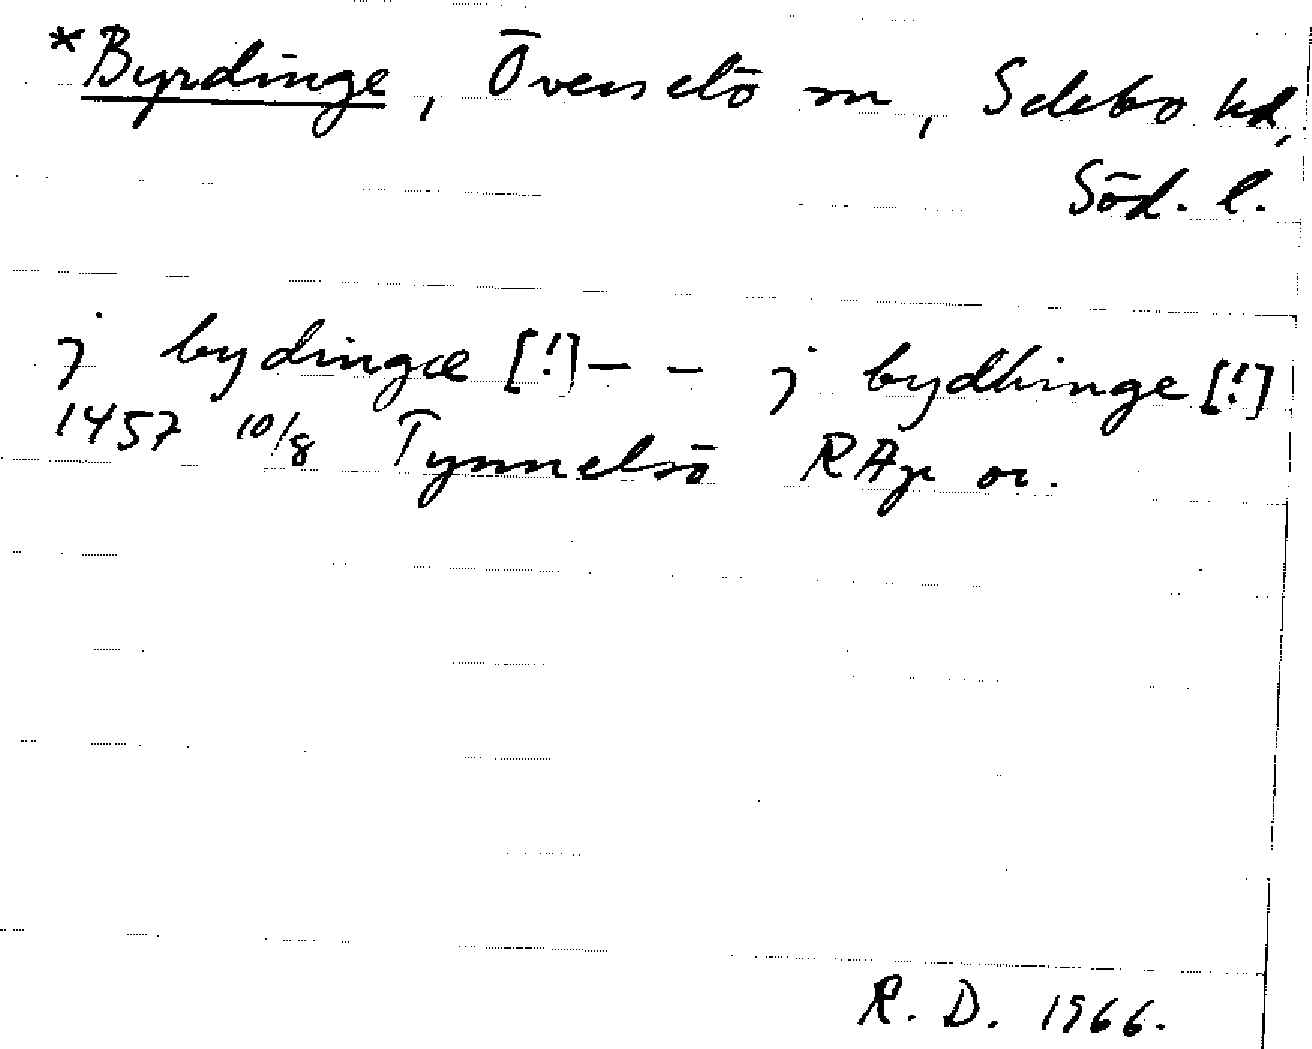 *Byrdinge, Överselö sn, Selebo hd,
Söd. l.
j bydingæ [!] - - j bydhinge [!]
1457 10/8 Tynnelsö RAp or.
R. D. 1966.